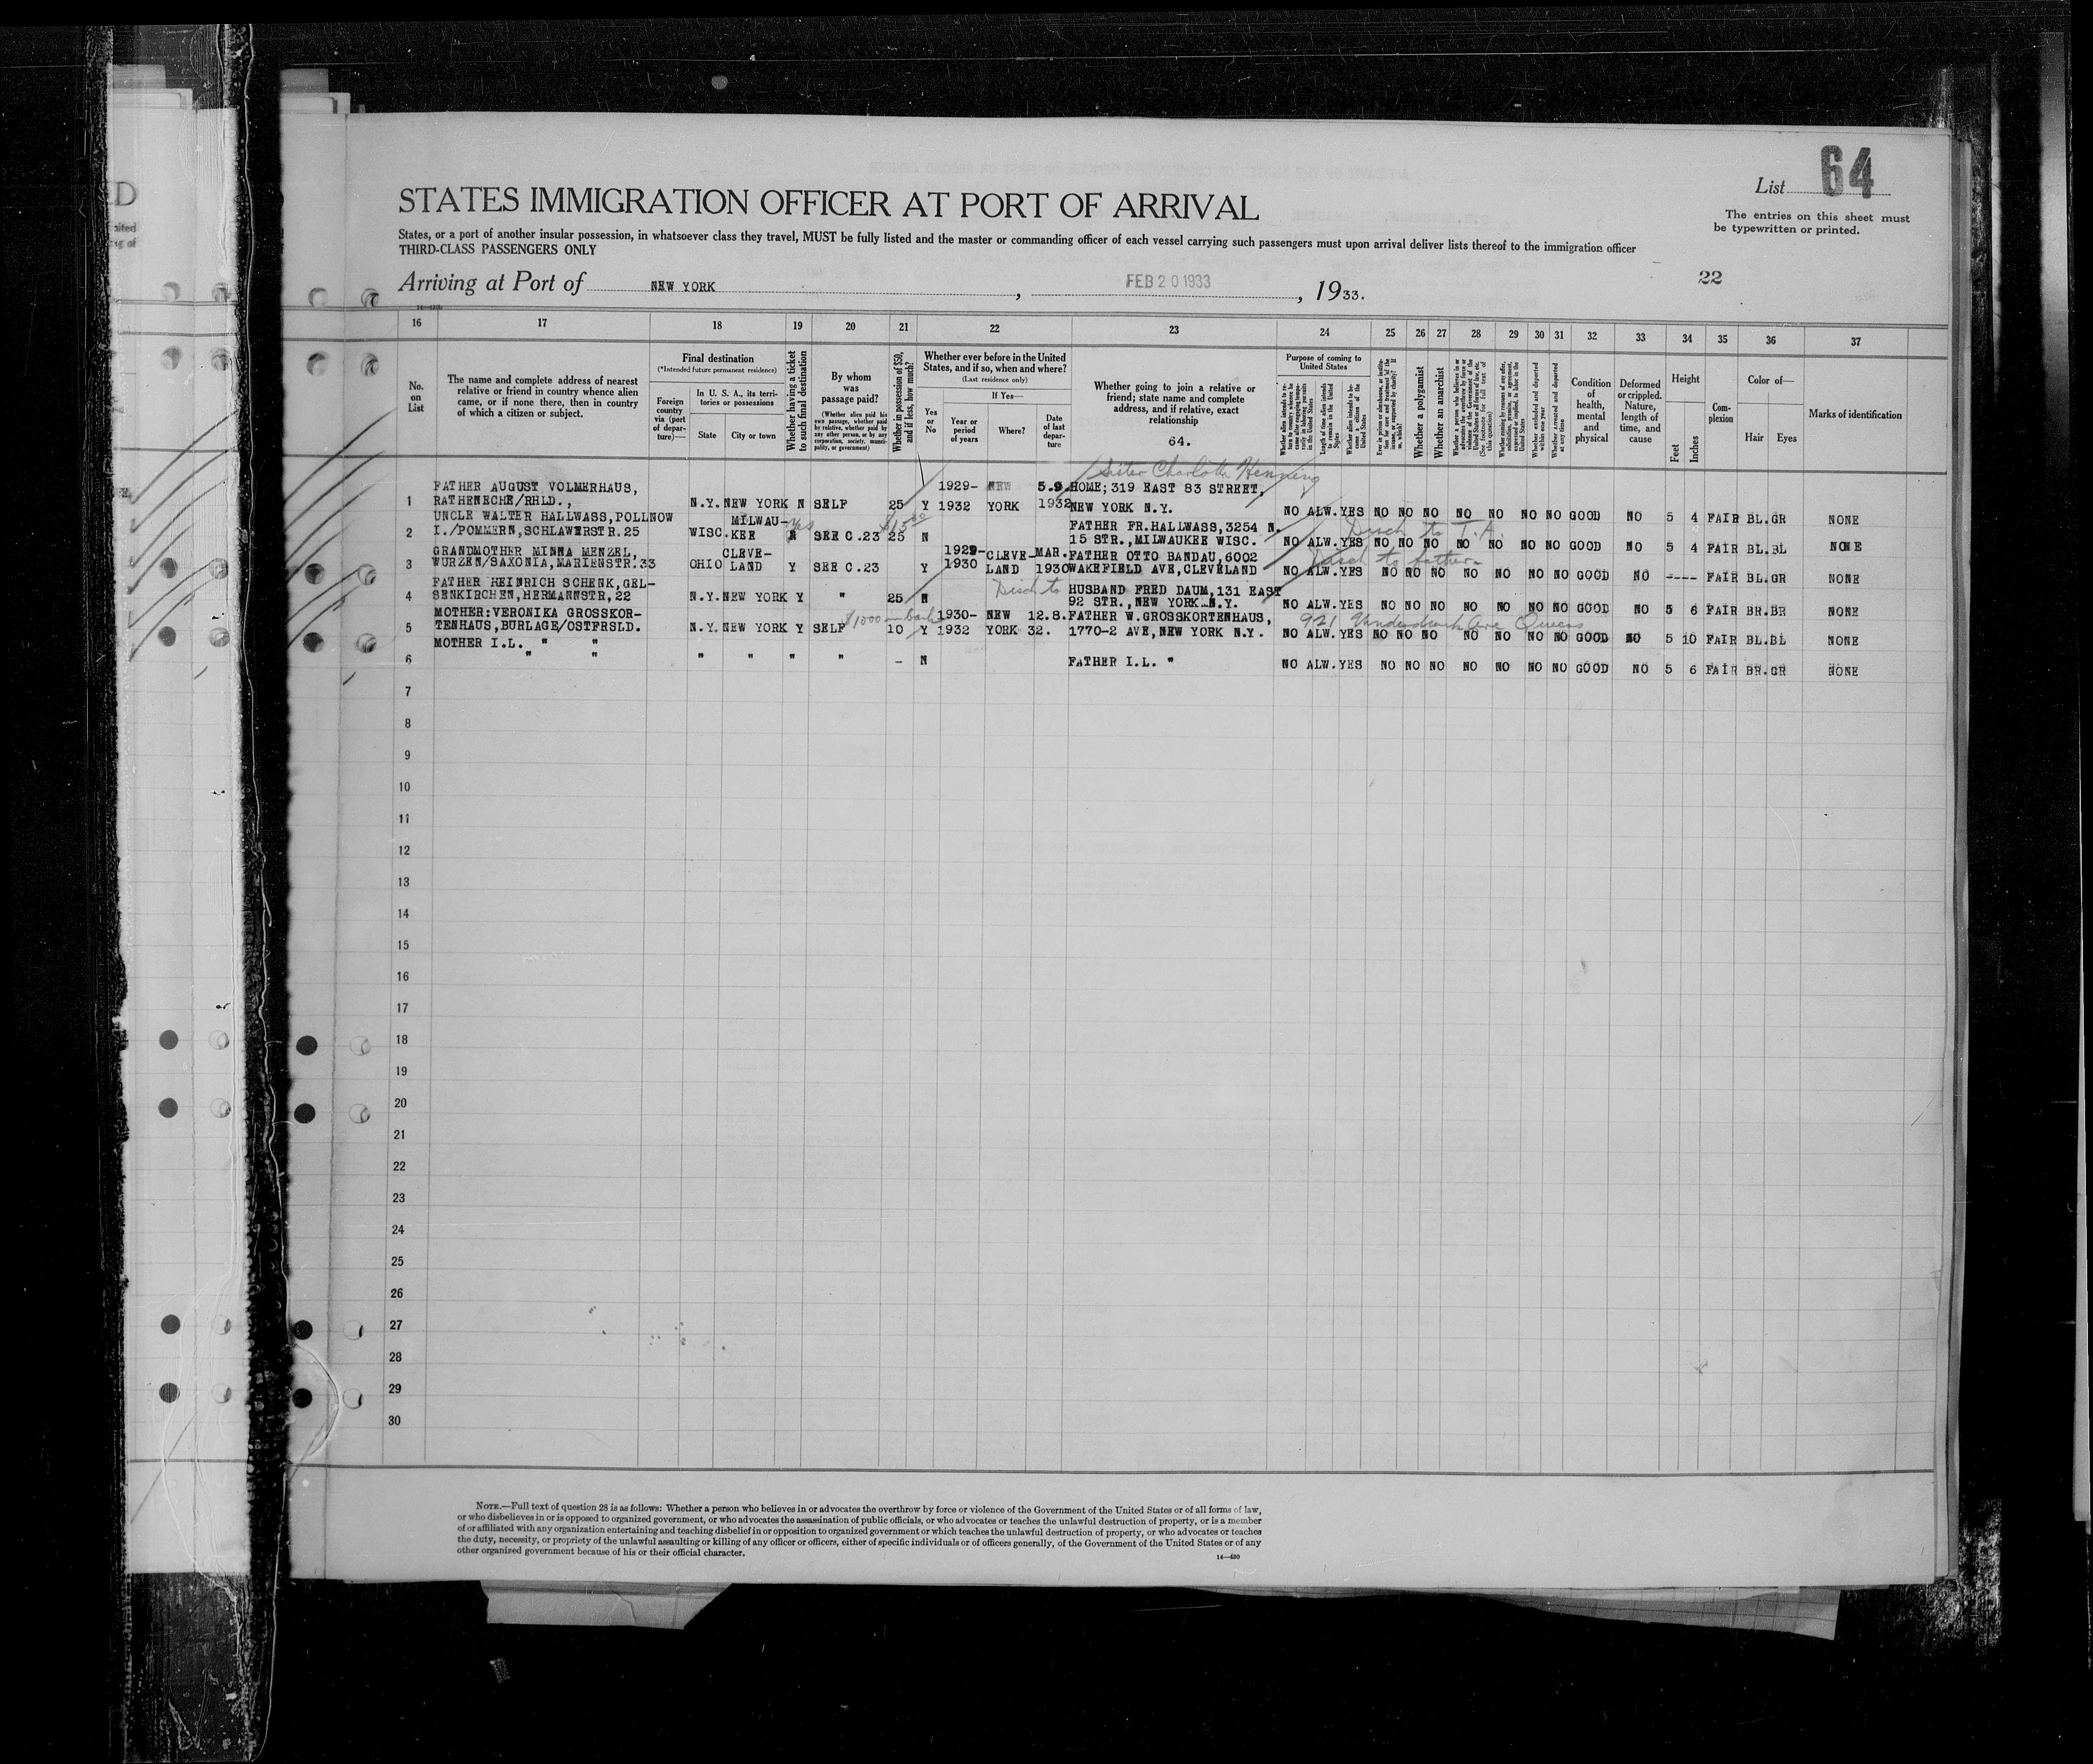 D
List 64
The entries on this sheet must
be typewritten or printed.
STATES IMMIGRATION OFFICER AT PORT OF ARRIVAL
States, or a port of another insular possession, in whatsoever class they travel, MUST be fully listed and the master or commanding officer of each vessel carrying such passengers must upon arrival deliver lists thereof to the immigration officer
THIRD-CLASS PASSENGERS ONLY
Arriving at Port of NEW YORK, FEB 20 1933, 1933.
22
16 17 18 19 20 21 22 23 24 25 26 27 28 29 30 31 32 33 34 35 36 37
No.
on
List
The name and complete address of nearest
relative or friend in country whence alien
came, or if none there, then in country
of which a citizen or subject.
Final destination
(*Intended future permanent residence)
Foreign
country
via (port
of depar-
ture)—
In U. S. A., its terri-
tories or possessions
State
City or town
Whether having a ticket
to such final destination
By whom
was
passage paid?
(Whether alien paid his
own passage, whether paid
by relative, whether paid by
any other person, or by any
corporation, society, munici-
pality, or government)
Whether in possession of $50,
and if less, how much?
Whether ever before in the United
States, and if so, when and where?
(Last residence only)
Yes
or
No
If Yes—
Year or
period
of years
Where?
Date
of last
depar-
ture
Whether going to join a relative or
friend; state name and complete
address, and if relative, exact
relationship
64.
Purpose of coming to
United States
Length of time alien intends
to remain in the United
States
Whether a polygamist
Whether an anarchist
Whether excluded and deported
within one year
Whether arrested and deported
at any time
Condition
of
health,
mental
and
physical
Deformed
or crippled.
Nature,
length of
time, and
cause
Height
Feet
Inches
Com-
plexion
Color of—
Hair Eyes
Marks of identification
Sister Charlotte Henning
FATHER AUGUST VOLMERHAUS, 1929- NEW 5.9. HOME; 319 EAST 83 STREET,
1 RATHENECHE/RHLD., N.Y. NEW YORK N SELF 25 Y 1932 YORK 1932 NEW YORK N.Y. NO ALW. YES NO NO NO NO NO NO NO GOOD NO 5 4 FAIR BL. GR NONE
UNCLE WALTER HALLWASS, POLLNOW MILWAU- yes FATHER FR. HALLWASS, 3254 N. Disch to T.A.
2 I./POMMERN, SCHLAWERSTR. 25 WISC. KEE N SEE C.23 25 N 15 STR., MILWAUKEE WISC. NO ALW. YES NO NO NO NO NO NO NO GOOD NO 5 4 FAIR BL. BL NONE
GRANDMOTHER MINNA MENZEL, CLEVE- 1929- CLEVE- MAR. FATHER OTTO BANDAU, 6002 Disch to father
3 WURZEN/SAXONIA, MARIENSTR. 33 OHIO LAND Y SEE C.23 Y 1930 LAND 1930 WAKEFIELD AVE, CLEVELAND NO ALW. YES NO NO NO NO NO NO NO GOOD NO ---- FAIR BL. GR NONE
FATHER HEINRICH SCHENK, GEL- Disch to HUSBAND FRED DAUM, 131 EAST
4 SENKIRCHEN, HERMANNSTR, 22 N.Y. NEW YORK Y " 25 N 92 STR., NEW YORK N.Y. NO ALW. YES NO NO NO NO NO NO NO GOOD NO 5 6 FAIR BR. BR NONE
MOTHER: VERONIKA GROSSKOR- $1000 in bank 1930- NEW 12.8. FATHER W. GROSSKORTENHAUS,
5 TENHAUS, BURLAGE/OSTFRSLD. N.Y. NEW YORK Y SELF 10 Y 1932 YORK 32. 1770-2 AVE, NEW YORK N.Y. NO ALW. YES NO NO NO NO NO NO NO GOOD NO 5 10 FAIR BL. BL NONE
MOTHER I.L. " "
6 " " " " " " - N FATHER I.L. " NO ALW. YES NO NO NO NO NO NO NO GOOD NO 5 6 FAIR BR. GR NONE
7
8
9
10
11
12
13
14
15
16
17
18
19
20
21
22
23
24
25
26
27
28
29
30
NOTE.—Full text of question 28 is as follows: Whether a person who believes in or advocates the overthrow by force or violence of the Government of the United States or of all forms of law,
or who disbelieves in or is opposed to organized government, or who advocates the assassination of public officials, or who advocates or teaches the unlawful destruction of property, or is a member
of or affiliated with any organization entertaining and teaching disbelief in or opposition to organized government or which teaches the unlawful destruction of property, or who advocates or teaches
the duty, necessity, or propriety of the unlawful assaulting or killing of any officer or officers, either of specific individuals or of officers generally, of the Government of the United States or of any
other organized government because of his or their official character.
14—430